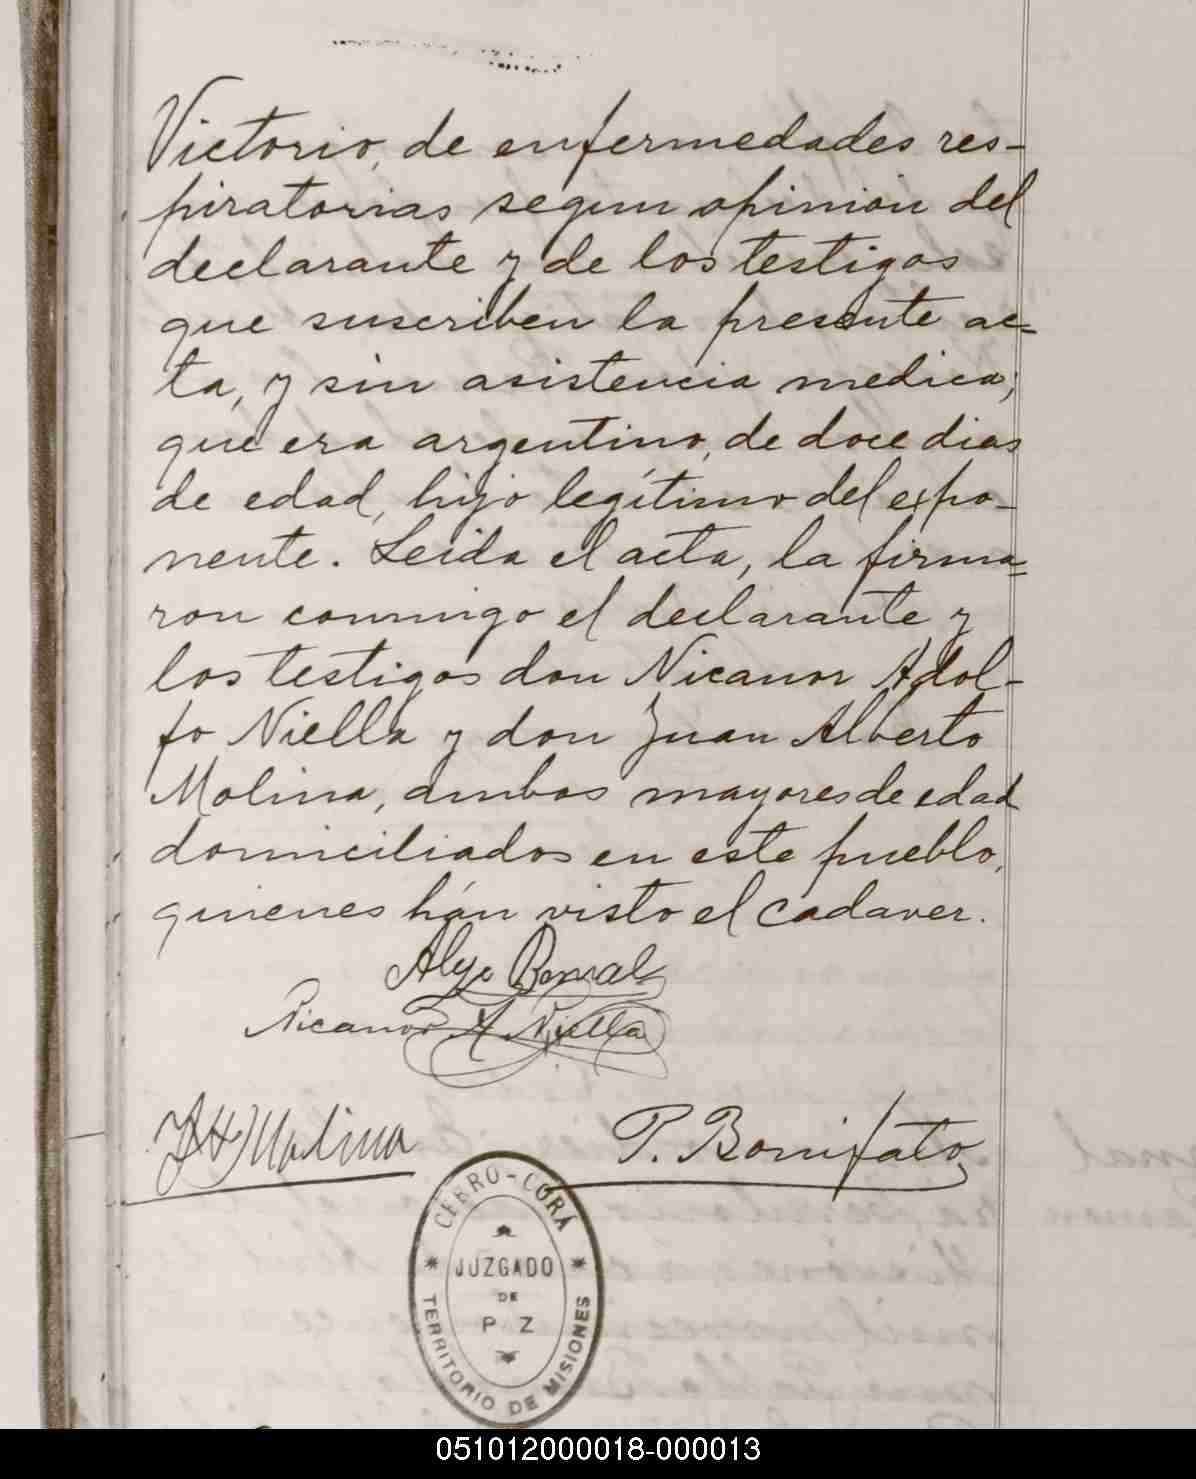 Victorio, de enfermedades res-
piratorias segun opinión del
declarante y de los testigos
que suscriben la presente ac=
ta, y sin asistencia medica;
que era argentino, de doce dias
de edad, hijo legítimo del expo-
nente. Leida el acta, la firma=
ron conmigo el declarante y
los testigos don Nicanor Adol-
fo Niella y don Juan Alberto
Molina, ambos mayores de edad
domiciliados en este pueblo,
quienes hán visto el cadaver.
Nicanor A Niella
Molina
P. Bonifato
CERRO-CORÁ
JUZGADO
DE
P Z
TERRITORIO DE MISIONES
051012000018-000013